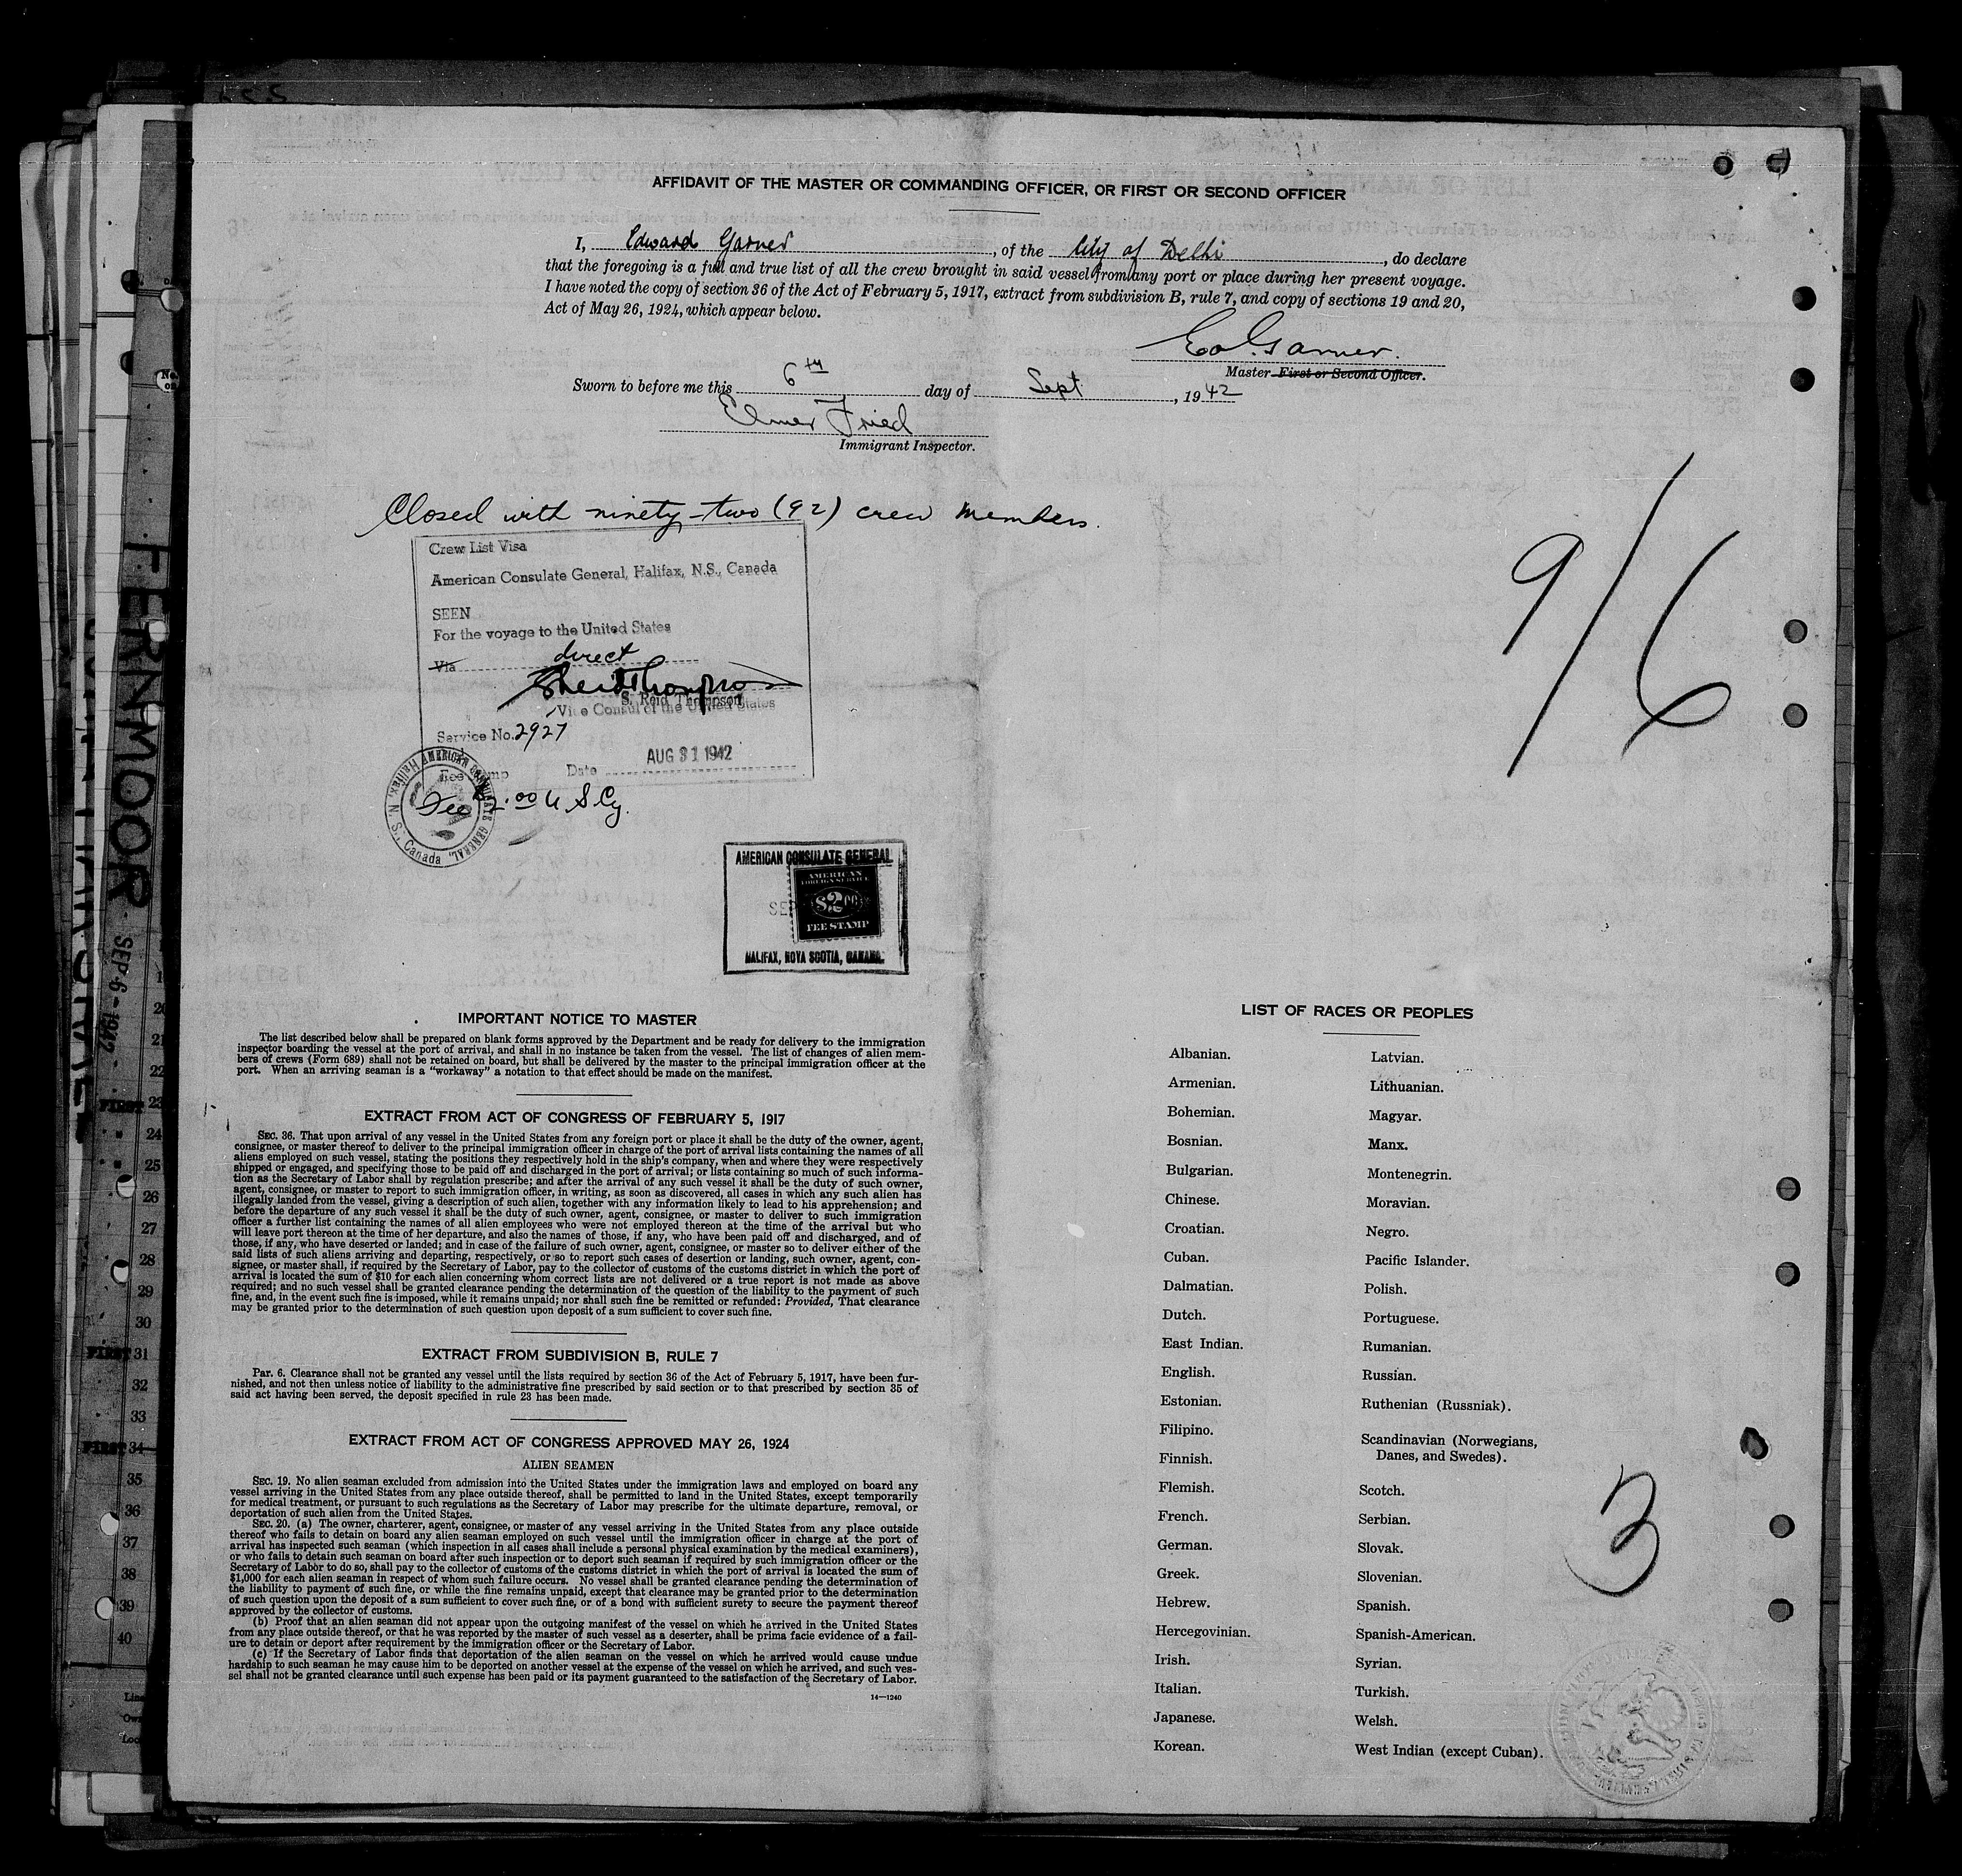 AFFIDAVIT OF THE MASTER OR COMMANDING OFFICER, OR FIRST OR SECOND OFFICER
I, Edward Garner, of the City of Delhi, do declare
that the foregoing is a full and true list of all the crew brought in said vessel from any port or place during her present voyage.
I have noted the copy of section 36 of the Act of February 5, 1917, extract from subdivision B, rule 7, and copy of sections 19 and 20,
Act of May 26, 1924, which appear below.
Ed. Garner.
Master First or Second Officer.
Sworn to before me this 6th day of Sept, 1942
Elmer Fried
Immigrant Inspector.
Closed with ninety-two (92) crew members.
9/6
Crew List Visa
American Consulate General, Halifax, N.S., Canada
SEEN
For the voyage to the United States
Via direct
S. Reid Thompson
Vice Consul of the United States
Service No. 2927
Fee Stamp Date AUG 31 1942
Fee 2.00 U.S.Cy.
AMERICAN CONSULATE GENERAL, Halifax, N. S., Canada
AMERICAN CONSULATE GENERAL
AMERICAN
FOREIGN SERVICE
SEP $2.00
FEE STAMP
HALIFAX, NOVA SCOTIA, CANADA.
IMPORTANT NOTICE TO MASTER
The list described below shall be prepared on blank forms approved by the Department and be ready for delivery to the immigration
inspector boarding the vessel at the port of arrival, and shall in no instance be taken from the vessel. The list of changes of alien mem-
bers of crews (Form 689) shall not be retained on board, but shall be delivered by the master to the principal immigration officer at the
port. When an arriving seaman is a "workaway" a notation to that effect should be made on the manifest.
EXTRACT FROM ACT OF CONGRESS OF FEBRUARY 5, 1917
SEC. 36. That upon arrival of any vessel in the United States from any foreign port or place it shall be the duty of the owner, agent,
consignee, or master thereof to deliver to the principal immigration officer in charge of the port of arrival lists containing the names of all
aliens employed on such vessel, stating the positions they respectively hold in the ship's company, when and where they were respectively
shipped or engaged, and specifying those to be paid off and discharged in the port of arrival; or lists containing so much of such informa-
tion as the Secretary of Labor shall by regulation prescribe; and after the arrival of any such vessel it shall be the duty of such owner,
agent, consignee, or master to report to such immigration officer, in writing, as soon as discovered, all cases in which any such alien has
illegally landed from the vessel, giving a description of such alien, together with any information likely to lead to his apprehension; and
before the departure of any such vessel it shall be the duty of such owner, agent, consignee, or master to deliver to such immigration
officer a further list containing the names of all alien employees who were not employed thereon at the time of the arrival but who
will leave port thereon at the time of her departure, and also the names of those, if any, who have been paid off and discharged, and of
those, if any, who have deserted or landed; and in case of the failure of such owner, agent, consignee, or master so to deliver either of the
said lists of such aliens arriving and departing, respectively, or so to report such cases of desertion or landing, such owner, agent, con-
signee, or master shall, if required by the Secretary of Labor, pay to the collector of customs of the customs district in which the port of
arrival is located the sum of $10 for each alien concerning whom correct lists are not delivered or a true report is not made as above
required; and no such vessel shall be granted clearance pending the determination of the question of the liability to the payment of such
fine, and, in the event such fine is imposed, while it remains unpaid; nor shall such fine be remitted or refunded: Provided, That clearance
may be granted prior to the determination of such question upon deposit of a sum sufficient to cover such fine.
EXTRACT FROM SUBDIVISION B, RULE 7
Par. 6. Clearance shall not be granted any vessel until the lists required by section 36 of the Act of February 5, 1917, have been fur-
nished, and not then unless notice of liability to the administrative fine prescribed by said section or to that prescribed by section 35 of
said act having been served, the deposit specified in rule 23 has been made.
EXTRACT FROM ACT OF CONGRESS APPROVED MAY 26, 1924
ALIEN SEAMEN
SEC. 19. No alien seaman excluded from admission into the United States under the immigration laws and employed on board any
vessel arriving in the United States from any place outside thereof, shall be permitted to land in the United States, except temporarily
for medical treatment, or pursuant to such regulations as the Secretary of Labor may prescribe for the ultimate departure, removal, or
deportation of such alien from the United States.
SEC. 20. (a) The owner, charterer, agent, consignee, or master of any vessel arriving in the United States from any place outside
thereof who fails to detain on board any alien seaman employed on such vessel until the immigration officer in charge at the port of
arrival has inspected such seaman (which inspection in all cases shall include a personal physical examination by the medical examiners),
or who fails to detain such seaman on board after such inspection or to deport such seaman if required by such immigration officer or the
Secretary of Labor to do so, shall pay to the collector of customs of the customs district in which the port of arrival is located the sum of
$1,000 for each alien seaman in respect of whom such failure occurs. No vessel shall be granted clearance pending the determination of
the liability to payment of such fine, or while the fine remains unpaid, except that clearance may be granted prior to the determination
of such question upon the deposit of a sum sufficient to cover such fine, or of a bond with sufficient surety to secure the payment thereof
approved by the collector of customs.
(b) Proof that an alien seaman did not appear upon the outgoing manifest of the vessel on which he arrived in the United States
from any place outside thereof, or that he was reported by the master of such vessel as a deserter, shall be prima facie evidence of a fail-
ure to detain or deport after requirement by the immigration officer or the Secretary of Labor.
(c) If the Secretary of Labor finds that deportation of the alien seaman on the vessel on which he arrived would cause undue
hardship to such seaman he may cause him to be deported on another vessel at the expense of the vessel on which he arrived, and such ves-
sel shall not be granted clearance until such expense has been paid or its payment guaranteed to the satisfaction of the Secretary of Labor.
14—1240
LIST OF RACES OR PEOPLES
Albanian.
Armenian.
Bohemian.
Bosnian.
Bulgarian.
Chinese.
Croatian.
Cuban.
Dalmatian.
Dutch.
East Indian.
English.
Estonian.
Filipino.
Finnish.
Flemish.
French.
German.
Greek.
Hebrew.
Hercegovinian.
Irish.
Italian.
Japanese.
Korean.
Latvian.
Lithuanian.
Magyar.
Manx.
Montenegrin.
Moravian.
Negro.
Pacific Islander.
Polish.
Portuguese.
Rumanian.
Russian.
Ruthenian (Russniak).
Scandinavian (Norwegians,
Danes, and Swedes).
Scotch.
Serbian.
Slovak.
Slovenian.
Spanish.
Spanish-American.
Syrian.
Turkish.
Welsh.
West Indian (except Cuban).
3
FERNMOOR
SEP 6 - 1942
20
21
22
FIRST 23
24
25
26
27
28
29
30
FIRST 31
32
33
FIRST 34
35
36
37
38
39
40